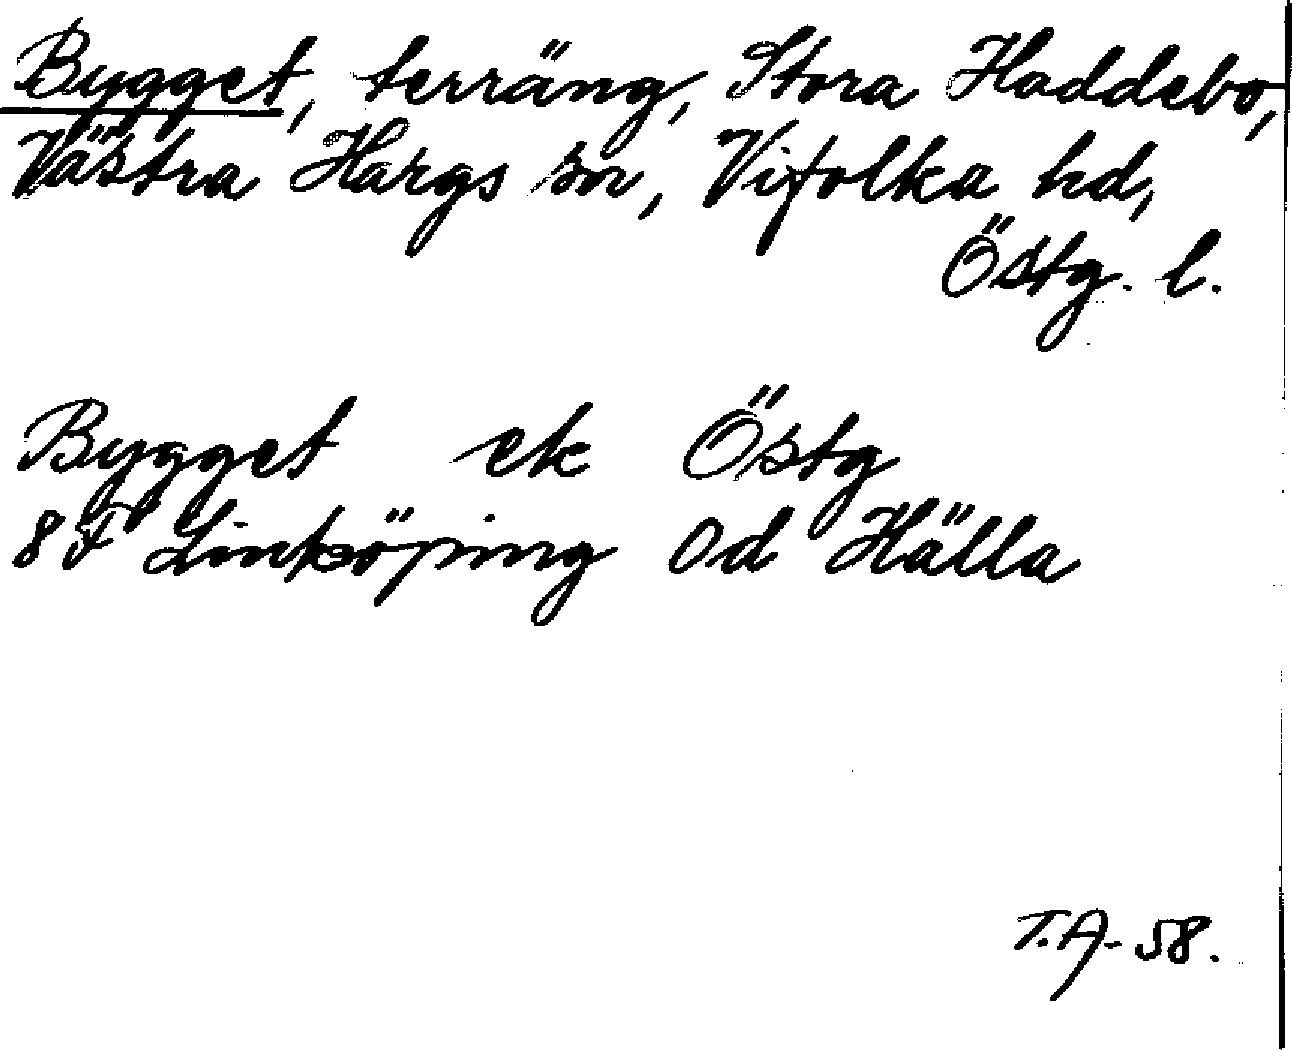 Bygget, terräng, Stora Haddebo,
Västra Hargs sn, Vifolka hd,
Östg. l.
Bygget ek Östg
8F Linköping Od Hälla
T.A-58.